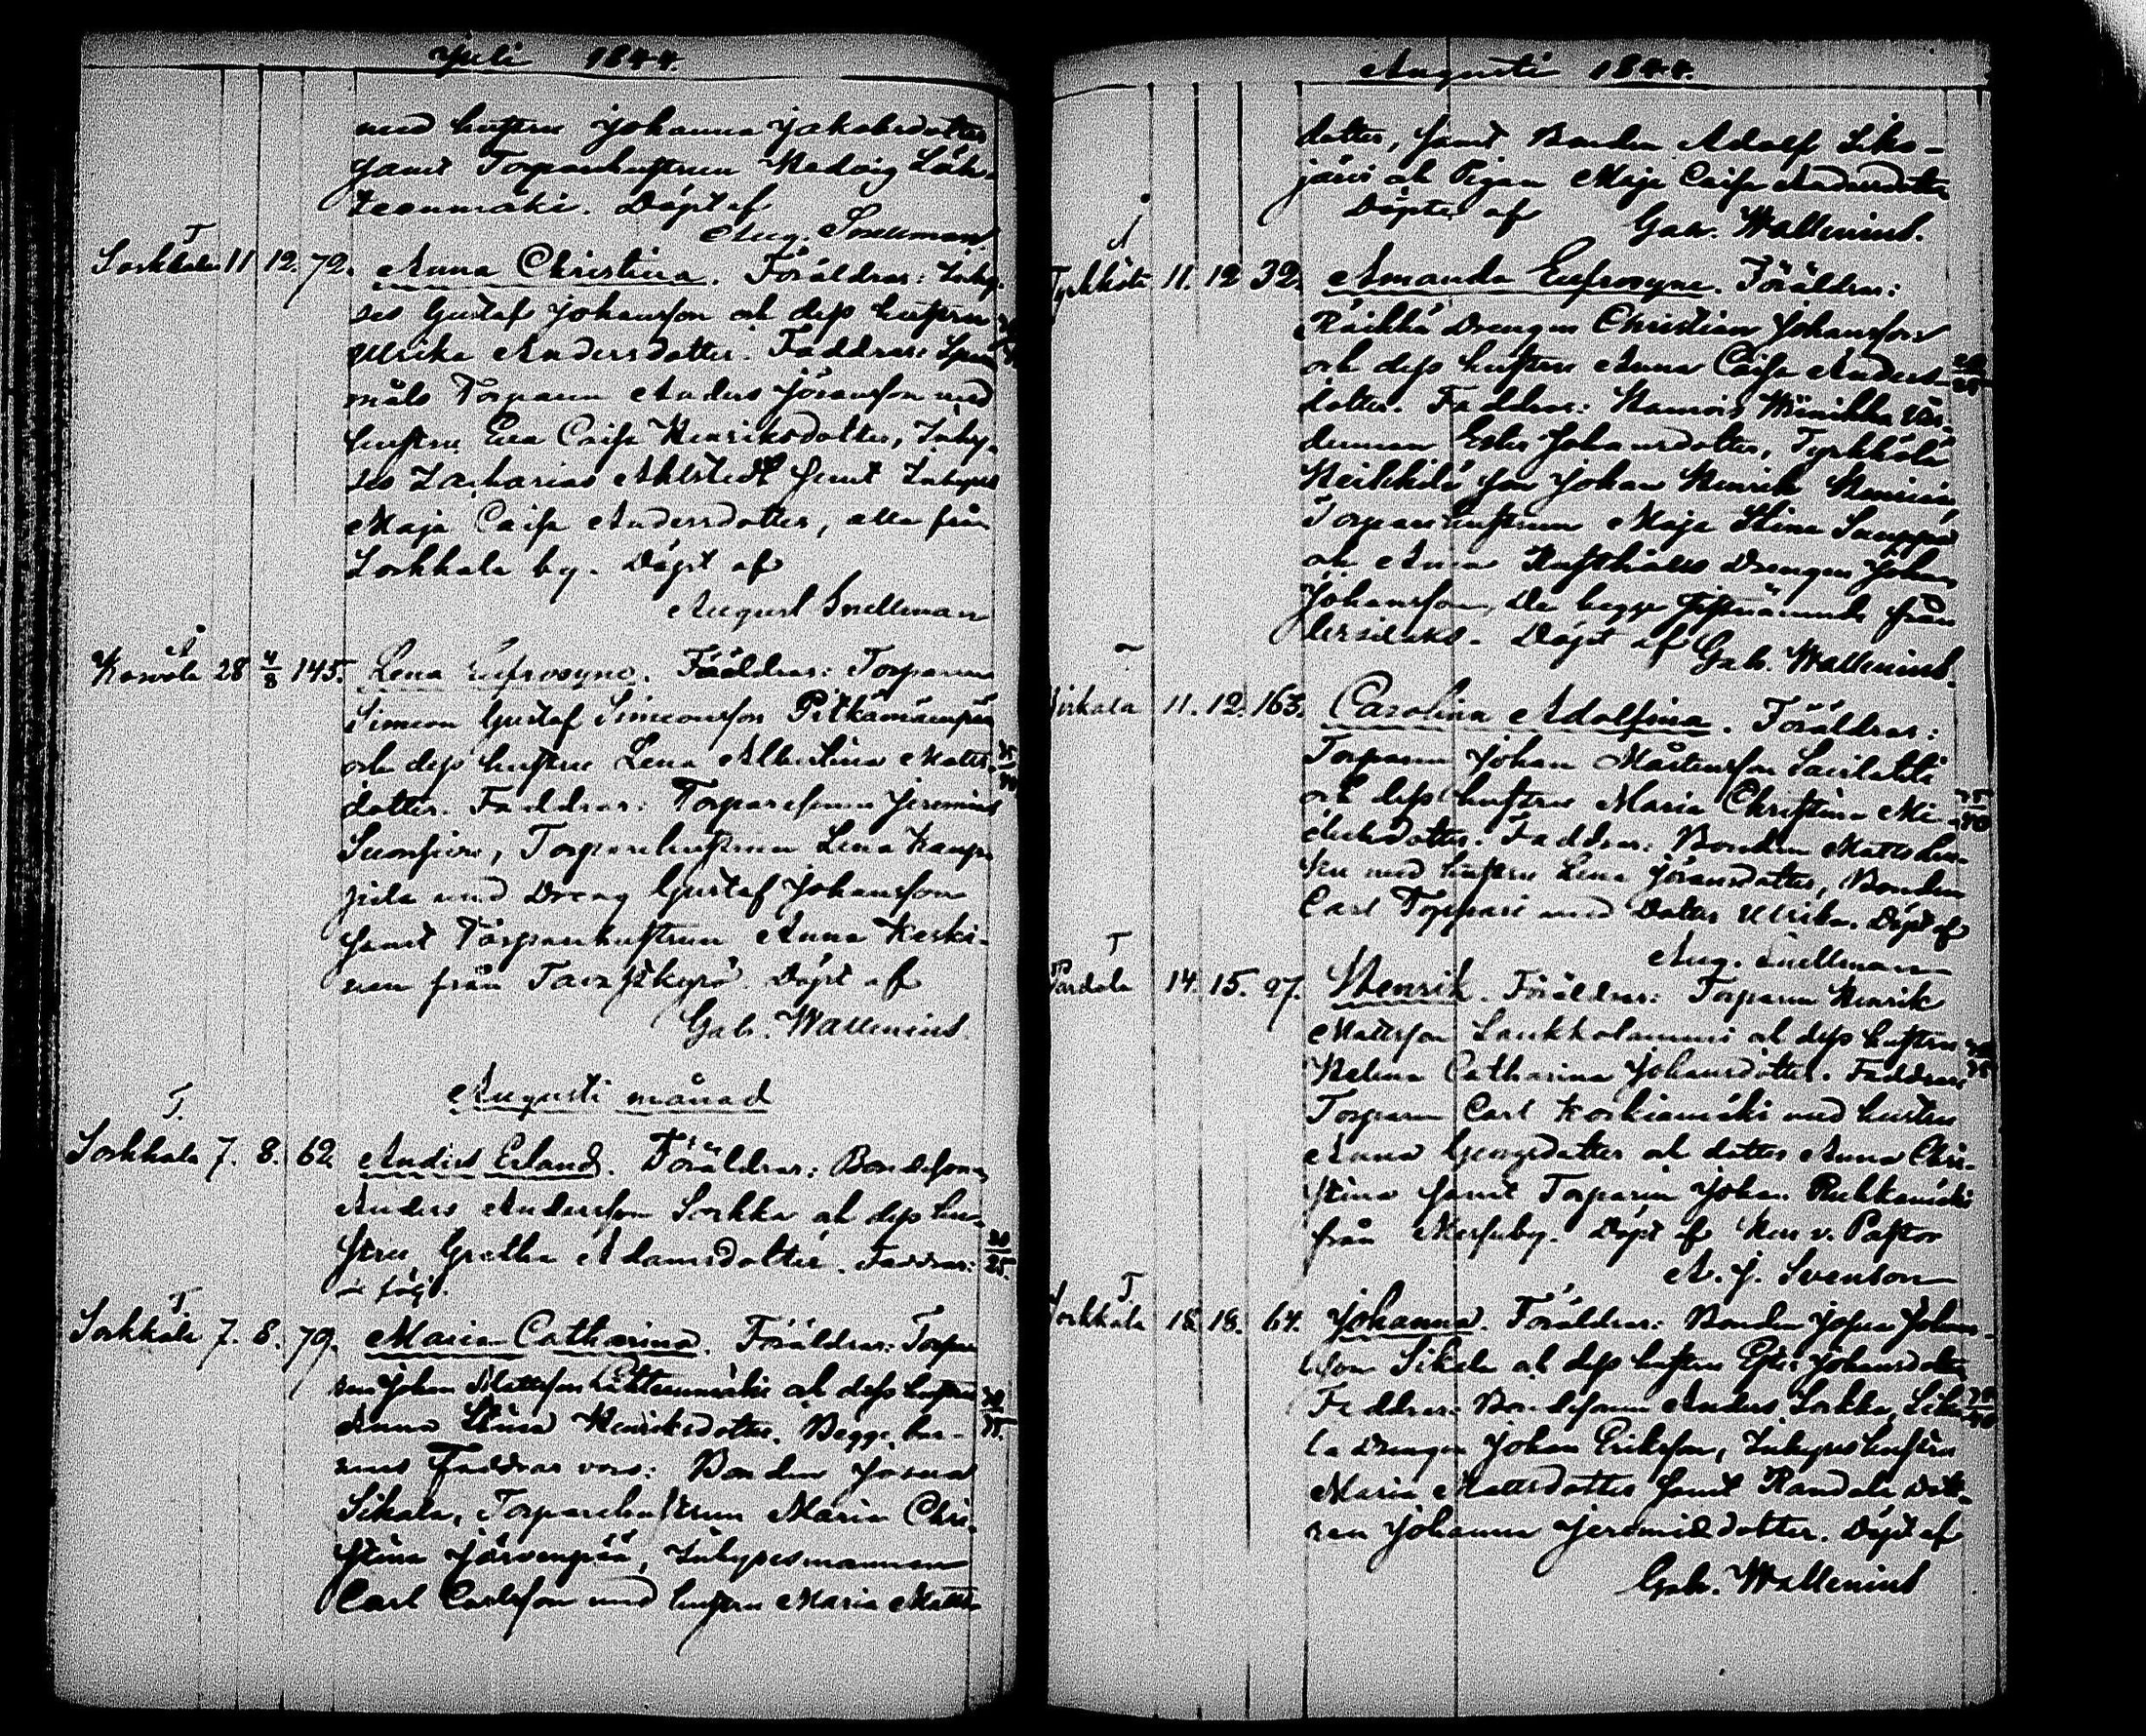 Juli 1844.
med hustru Johanna Jakobsdotter
samt Torparehustrun Hedvig Läh-
teenmäki. Döpt af
Aug. Snellman.
T
Sorkkala 11 12. 72. Anna Christina. Föräldrar: Inhy-
ses Gustaf Johansson och dess hustru
Ulrika Andersdotter. Faddrar:
måls Torparen Anders Göransson med
hustru Eva Caisa Henriksdotter, Inhy-
ses Zacharias Ahlstedt samt Inhyses
Maja Caisa Andersdotter, alla från
Sorkkala by. Döpt af
August Snellman
Korvola 28 4/8 145. Lena Eufrosyne. Föräldrar: Torparen
Simeon Gustaf Simeonsson Pitkämäenpää
och dess hustru Lena Albertina Matts- 35/40
dotter. Faddrar: Torparesonen Jeremias
Torparehustrun Lena
med Dreng Gustaf Johansson
samt Torparehustrun Anna Keski-
nen från Tavastkyrö. Döpt af
Gab. Wallenius.
Augusti månad
T.
Sorkkala 7. 8. 62. Anders Erland. Föräldrar: Bondesonen
Anders Andersson Sorkka och dess hu-
stru Gretha Adamsdotter. Faddrar: 20/25.
se följ.
T.
Sorkkala 7. 8. 79. Maria Catharina. Föräldrar: Torpa-
ren Johan Mattsson Lähteenmäki och dess hustru
Anna Stina Henriksdotter. Begge bar-
nens Faddrar voro: Bonden Josua
Sikala, Torparehustrun Maria Chri-
stina Järvenpää, Inhysesmannen
Carl Carlsson med hustru Maria Matts-
Augusti 1844.
dotter, samt Bonden Adolf Siko-
järvi och Pigan Maja Caisa Andersdotter
Döpte af Gab. Wallenius.
Tyrkkölä 11. 12 32. Amanda Eufrosyne. Föräldrar:
Räikkä Drengen Christian Johansson
och dess hustru Anna Caisa Anders-
dotter. Faddrar: Wänikkä Vär-
dinnan Ester Johansdotter, Tyrkkölä
Heikkilä son Johan Henrik
Torparehustrun Maja Stina
och Rusthålls Drengen Johan
Johansson, De begge sistnämnde från
Döpt af Gab. Wallenius.
11. 12. 163. Carolina Adolfina. Föräldrar:
Torparen Johan Mårtensson
och dess hustru Maria Christina Mi- 35/40
chelsdotter. Faddrar: Bonden Matts
med hustru Lena Göransdotter, Bonden
Carl Toppari med Dotter Ulrika. Döpt af
Aug. Snellman
T
Pardala 14. 15. 27. Henrik. Föräldrar: Torparen Henrik
Mattsson Laukkolammi och dess hustru
Helena Catharina Johansdotter. Faddrar:
Torparen Carl Koskiamäki med hustru
Anna Georgsdotter och dotter Anna Chri-
stina samt Torparen Johan Ruhkamäki
från Messuby. Döpt af Herr v. Pastor
A. J. Svenson
T
Sorkkala 18. 18. 64. Johanna. Föräldrar: Bonden Josua Johans-
son Sikala och dess hustru Ester Johansdotter
Faddrar: Bondesonen Anders Sorkka, Sika-
la Drengen Johan Eriksson, Inhyseshustrun
Maria Mattsdotter samt Randala Dott-
ren Johanna Jeremiedotter. Döpt af
Gab. Wallenius